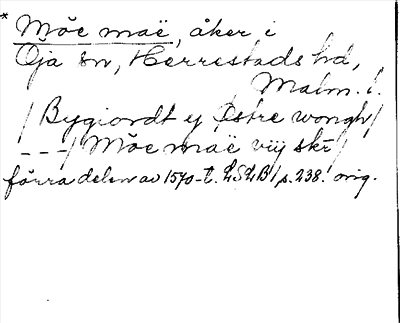 * Möe maë, åker i
Öja sn, Herrestads hd,
Malm. l.
/ Bygiordt ej Østre wongh /
- - - / Möe maë viij skr /
förra delen av 1570-t. LSLB / p. 238. orig.